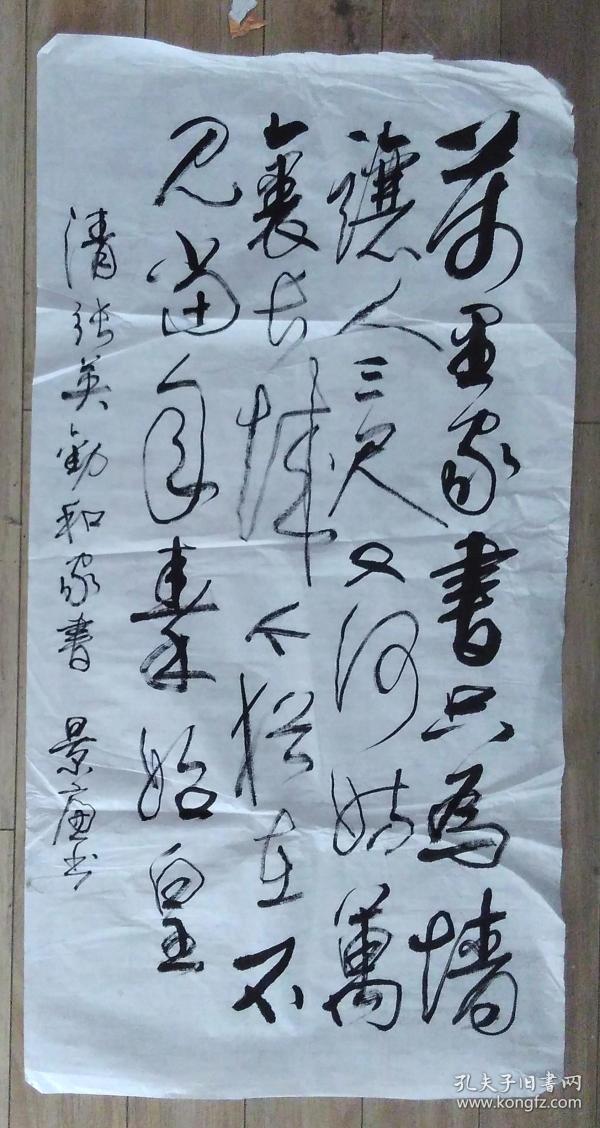 萬里家書只為墙
讓人三尺又何妨萬
裏长城今猶在不
见當年秦始皇
清张英勸和家書 景书
孔夫子旧書网
www.kongfz.com